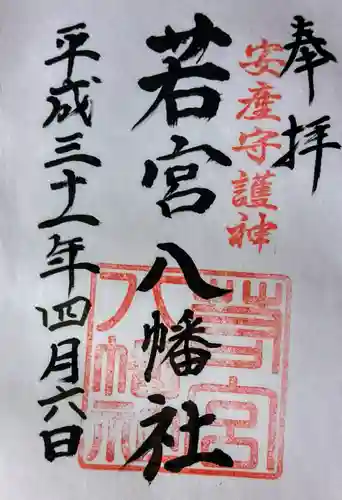 奉拝
安産守護神
若宮八幡社
平成三十一年四月六日
若宮
八幡社